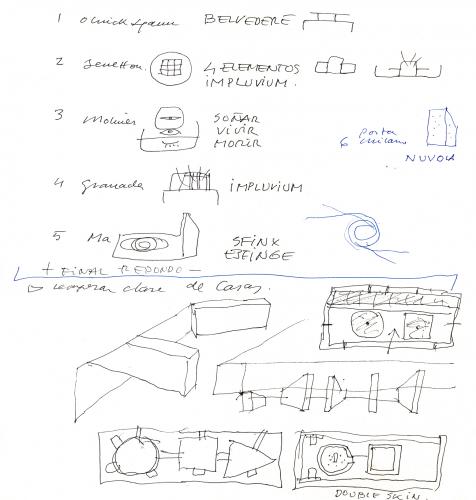 1 BELVEDERE
2 Benetton. 4 ELEMENTOS
IMPLUVIUM.
3 SOÑAR
VIVIR
MORIR
6 porta
NUVOLA
4 granada IMPLUVIUM
5 Ma SFINX
ESFINGE
+ FINAL REDONDO —
recuperar clase de Casas.
DOUBLE SKIN.